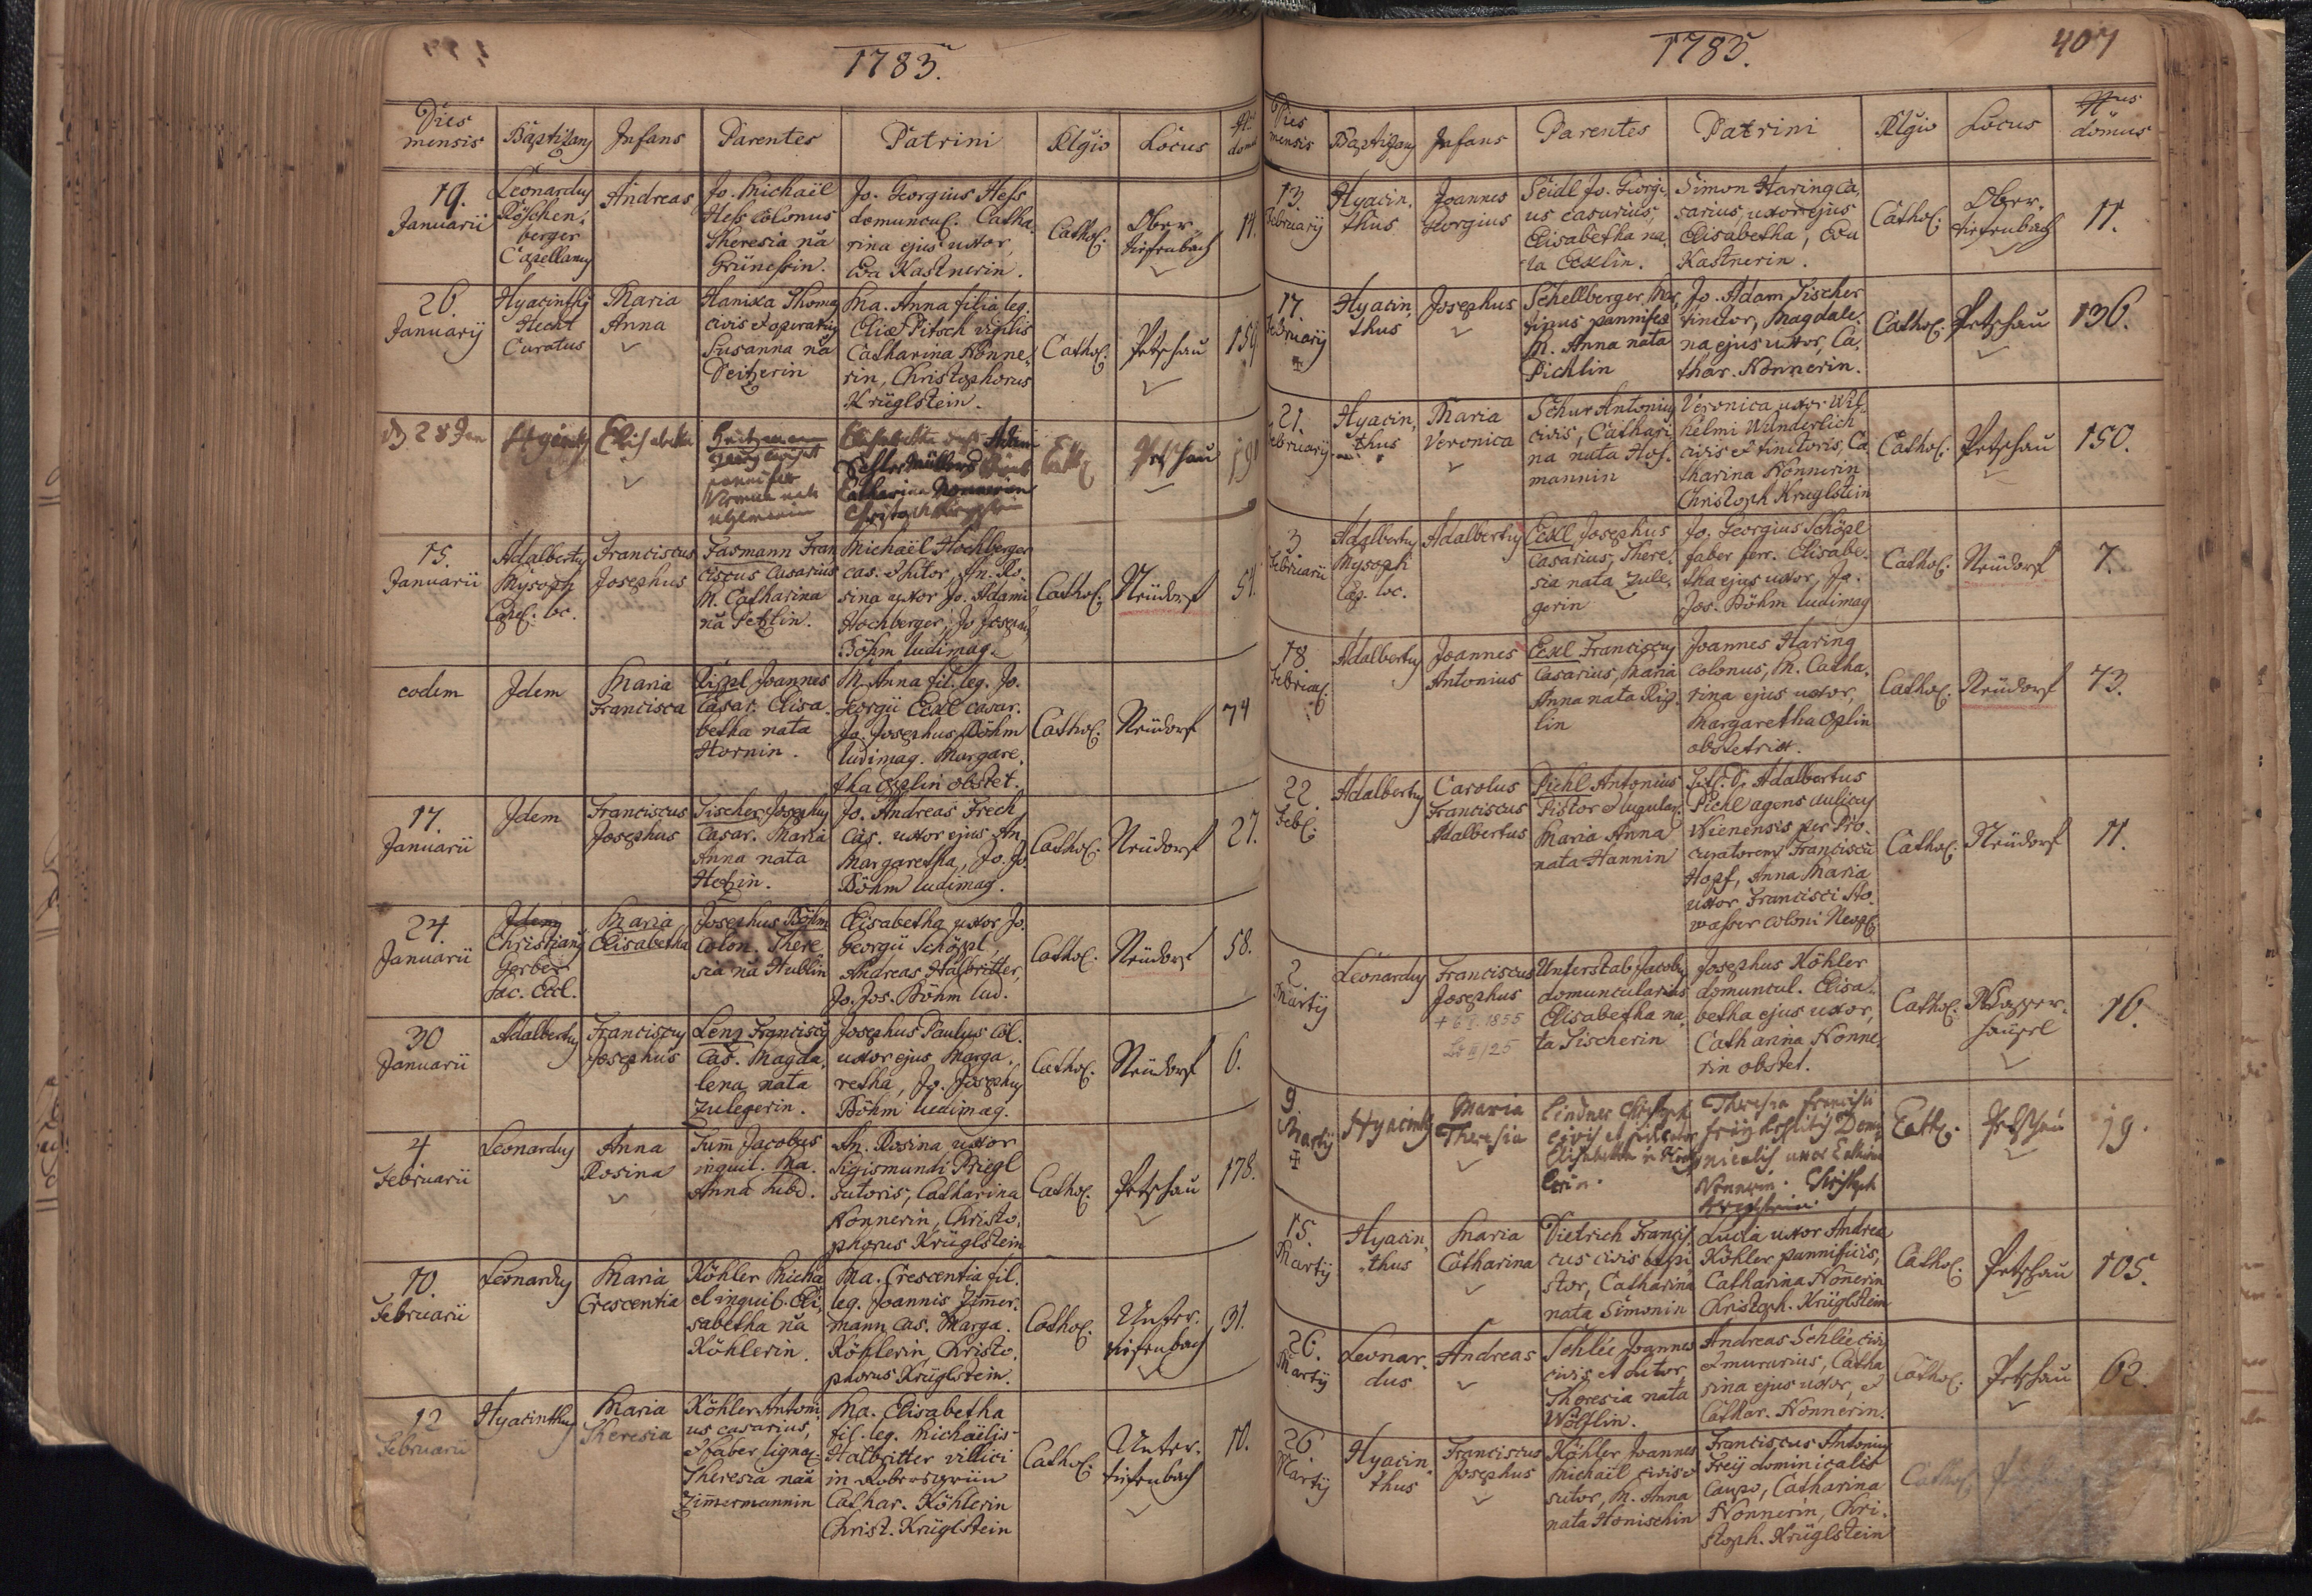 1785.
Dies mensis Baptizans Infans Parentes Patrini Rlgio Locus Nus domus
19. Januarii
Leonardus
Röschen,
berger
Capellanus
Andreas
Jo. Michaël
Hess colonus
Theresia nãa
Jo. Georgius Hess
domuncul. Catha,
rina ejus uxor,
Eva Kastnerin.
Cathol.
Ober,
tiefenbach
11.
26.
Januarij
Hyacinthus
Hecht
Curatus
Maria
Anna
Hanika Thomas
civis et operarius
Susanna nãa
Peitzerin
Ma. Anna filia leg.
Eliae Pitsch vigilis
Catharina Nonne,
rin, Christophorus
Krüglstein.
Cathol.
Petschau
159
28 Jan
Elisabetha
Elisabetha
Catharina Nonnerin
Petschau
15.
Januarii
Adalbertus
Mysoph
Capel. loc.
Franciscus
Josephus
Fasmann Fran
ciscus casarius
M. Catharina
nãa Petzlin.
Michaël Hochberger
cas. et sutor, An. Ro,
sina uxor Jo. Adami
Hochberger, Jo Joseph,
Böhm ludimag.
Cathol.
Neüdorf
51.
eodem
Idem
Maria
Francisca
Rippl Joannes
Casar. Elisa,
betha nata
Hornin.
M. Anna fil. leg. Jo.
Georgii Eckl casar.
Jo. Josephus Böhm
ludimag. Margare,
tha Oplin obstet.
Cathol.
Neüdorf
74
17.
Januarii
Idem
Franciscus
Josephus
Fischer Josephus
Casar. Maria
Anna nata
Hetzin.
Jo. Andreas Frech
cas. uxor ejus An.
Margaretha, Jo. Jo.
Böhm ludimag.
Cathol.
Neüdorf
27.
24.
Januarii
Idem
Christianus
Gerber
Sac. Eccl.
Maria
Elisabetha
Josephus Böhm
colon. There
sia nãa Hüblin
Elisabetha uxor Jo.
Georgii Schöppl
Andreas Halbritter,
Jo. Jos. Böhm lud.
Cathol.
Neüdorf
58.
30
Januarii
Adalbertus
Franciscus
Josephus
Lenz Franciscus
Cas. Magda,
lena nata
Zulegerin.
Josephus Paulus col.
uxor ejus Marga,
retha, Jo. Josephus
Böhm ludimag.
Cathol.
Neüdorf
6.
4
Februarii
Leonardus
Anna
Rosina
Tum̃ Jacobus
inquil. Ma.
Anna
An. Rosina uxor
Sigismundi Priegl
sutoris, Catharina
Nonnerin, Christo,
phorus Krüglstein
Cathol.
Petschau
178.
10.
Februarii
Leonardus
Maria
Crescentia
Köhler Micha
el inquil. Eli,
sabetha nãa
Köhlerin.
Ma. Crescentia fil.
leg. Joannis Zim̃er,
mann cas. Marga.
Köhlerin, Christo,
phorus Krüglstein.
Cathol.
Unter,
tiefenbach
31.
12
Februarii
Hyacinthus
Maria
Theresia
Köhler Antoni
us casarius,
et faber lignar.
Theresia nãa
Zim̃ermannin
Ma. Elisabetha
fil. leg. Michaëlis
Halbritter villici
in Robersgrün
Cathar. Köhlerin
Christ. Krüglstein
Cathol.
Unter,
tiefenbach
10.
1785.
407
Dies mensis Baptizans Infans Parentes Patrini Rlgio Locus Nus domus
13.
Februarij
Hyacin,
thus
Joannes
Georgius
Seidl Jo. Georgi,
us casarius,
Elisabetha na,
ta Ecklin.
Simon Haring ca,
sarius, uxor ejus
Elisabetha, Eva
Kastnerin.
Cathol.
Ober,
tiefenbach
11.
17.
Februarij
Hyacin,
thus
Josephus
Schellberger Mar,
tinus pannifex
M. Anna nata
Pichlin
Jo. Adam Fischer
tinctor, Magdale,
na ejus uxor, Ca,
thar. Nonnerin.
Cathol.
Petschau
136.
21.
Februarij
Hyacin,
thus
Maria
Veronica
Schur Antonius
civis, Cathari
na nata Hof,
mannin
Veronica uxor Wil,
helmi Wunderlich
civis et tinctoris, Ca
tharina Nonnerin
Christoph Krüglstein
Cathol.
Petschau
150.
3.
Februarii
Adalbertus
Mysoph
Cap. loc.
Adalbertus
Eckl Josephus
Casarius, There,
sia nata Zule,
gerin
Jo. Georgius Schöpl
faber ferr. Elisabe,
tha ejus uxor, Jo.
Jos. Böhm ludimag
Cathol.
Neüdorf
7.
18
Adalbertus
Joannes
Antonius
Eckl Franciscus
Casarius, Maria
Anna nata Rip,
lin
Joannes Haring
colonus, M. Catha,
rina ejus uxor,
Margaretha Oplin
obstetrix.
Cathol.
Neüdorf
73.
22.
Feb.
Adalbertus
Carolus
Franciscus
Adalbertus
Pichl Antonius
Pistor et
Maria Anna
nata Hannin
Adalbertus
Pichl agens aulicus
Wienensis per Pro,
curatorem Franciscũ
Hopf, Anna Maria
uxor Francisci Ho,
wasser coloni
Cathol.
Neüdorf
11.
2.
Martij
Leonardus
Franciscus
Josephus
Unterstab Jacobus
domuncularius
Elisabetha na,
ta Fischerin
Josephus Köhler
domuncul. Elisa,
betha ejus uxor,
Catharina Nonne,
rin obstet.
Cathol.
Wasser,
häusel
16.
9.
Martij
Hyacinth
Maria
Theresia
Lindner Christoph
civis et
Elisabetha
Theresia Francisci
uxor Catharina
Nonnerin. Christoph
Cath.
Petschau
19.
15.
Martij
Hyacin,
thus
Maria
Catharina
Dietrich Francis,
cus civis et pi
stor, Catharina
nata Simonin
Lucia uxor Andreae
Köhler pannificis,
Catharina Nonnerin
Christoph. Krüglstein
Cathol.
Petschau
105.
26.
Martij
Leonar,
dus
Andreas
Schlée Joannes
civis et sutor,
Theresia nata
Wölflin.
Andreas Schlée civis
et murarius, Catha
rina ejus uxor, et
Cathar. Nonnerin.
Cathol.
Petschau
62.
26.
Martij
Hyacin
thus
Franciscus
Josephus
Köhler Joannes
Michaël civis et
sutor, M. Anna
nata Honischin
Franciscus Antonius
Freij dominicalis
Caupo, Catharina
Nonnerin, Chri,
stoph. Krüglstein
Cathol.